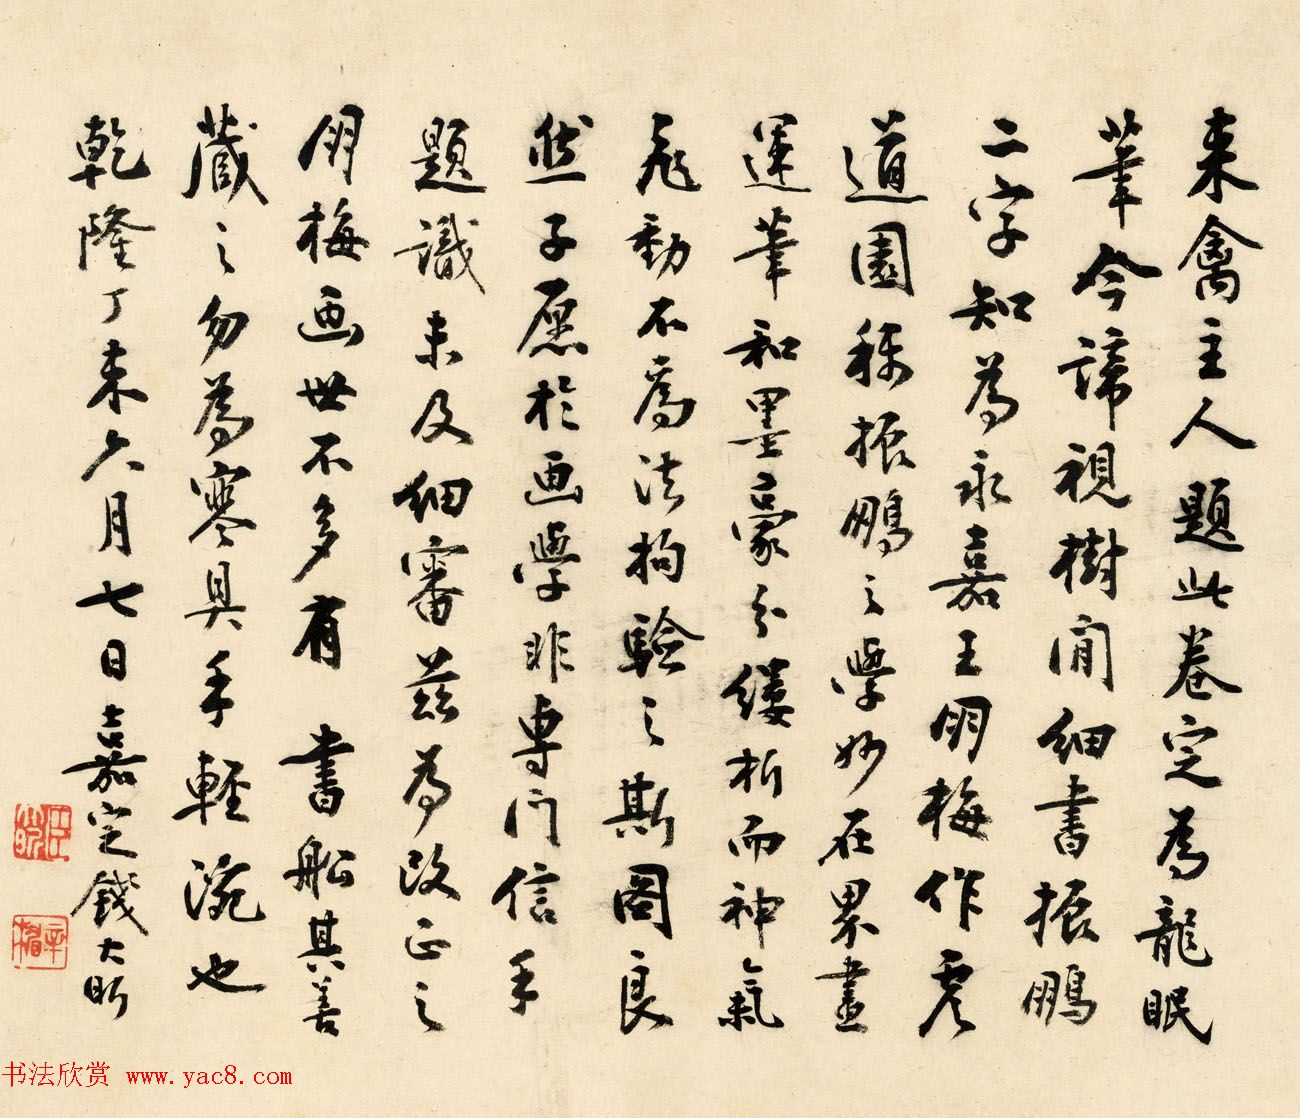 來禽主人題此卷定為龍眠
筆今諦視樹間細書振鵬
二字知為永嘉王朋梅作虞
道園稱振鵬之學妙在界畫
運筆和墨豪分縷析而神氣
飛動不為法拘驗之斯圖良
然子愿於畫學非專門信手
題識未及細審茲為改正之
朋梅画世不多有 書船其善
藏之勿為寒具手輕涴也
乾隆丁未六月七日嘉定錢大昕
书法欣赏 www.yac8.com